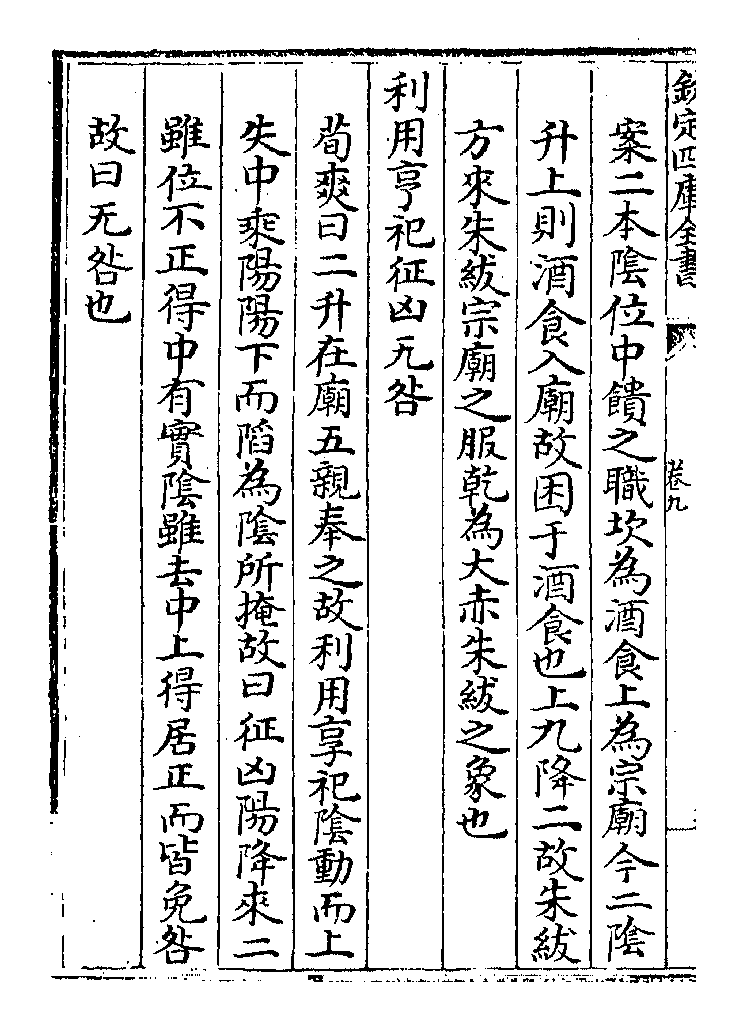 欽定四庫全書
卷九
案二本陰位中饋之職坎為酒食上為宗廟今二陰
升上則酒食入廟故困于酒食也上九降二故朱紱
方來朱紱宗廟之服乾為大赤朱紱之象也
利用亨祀征凶无咎
荀爽曰二升在廟五親奉之故利用享祀陰動而上
失中乘陽陽下而陷為陰所掩故曰征凶陽降來二
雖位不正得中有實陰雖去中上得居正而皆免咎
故曰无咎也